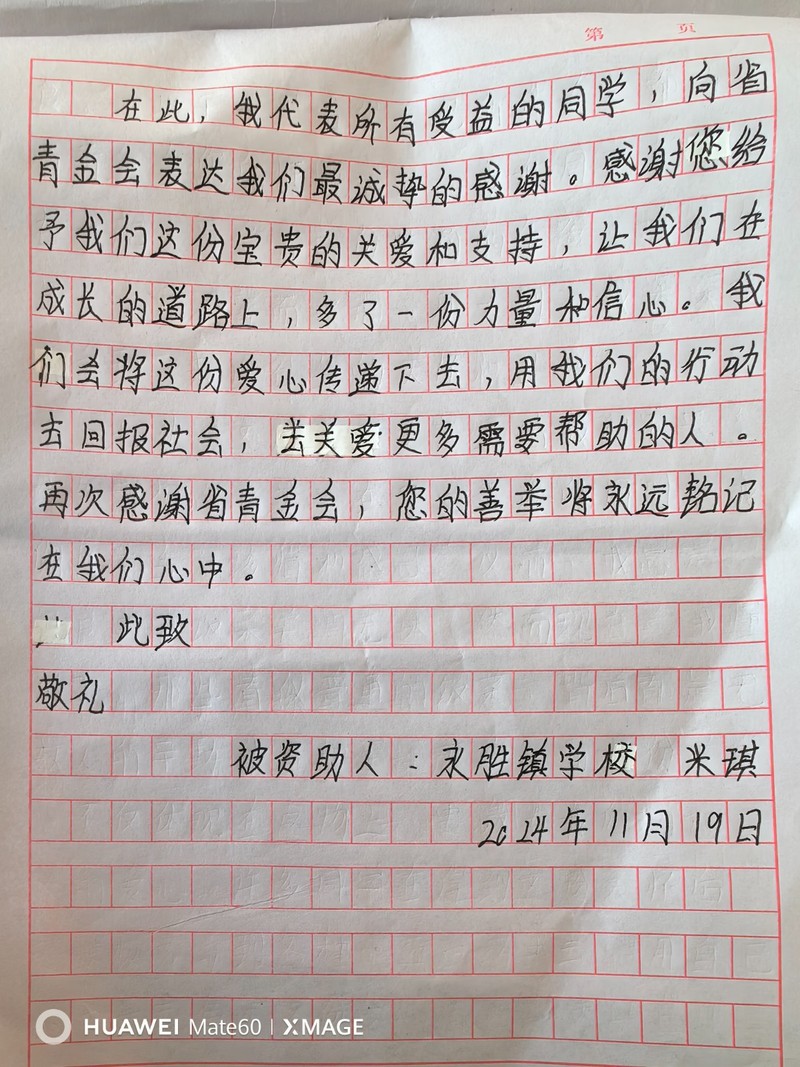 第 页
在此，我代表所有受益的同学，向省
青金会表达我们最诚挚的感谢。感谢您给
予我们这份宝贵的关爱和支持，让我们在
成长的道路上，多了一份力量和信心。我
们会将这份爱心传递下去，用我们的行动
去回报社会，去关爱更多需要帮助的人。
再次感谢省青金会，您的善举将永远铭记
在我们心中。
此致
敬礼
被资助人：永胜镇学校 米琪
2024年11月19日
HUAWEI Mate60 | XMAGE